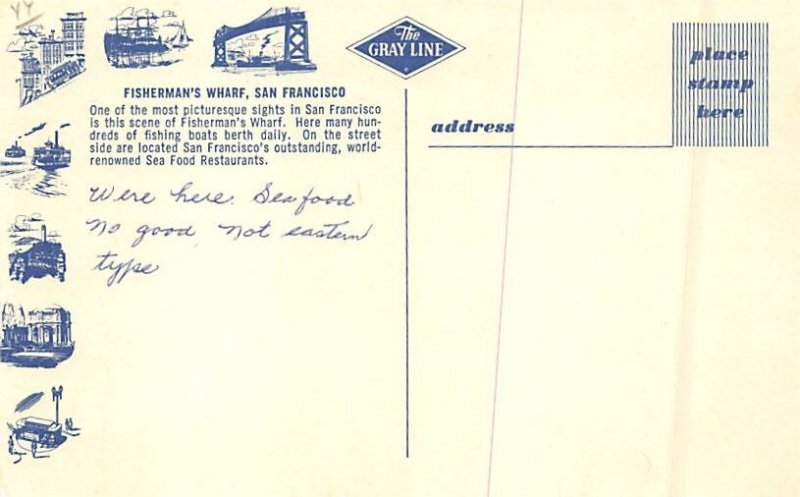 YY
The
GRAY LINE
place
stamp
here
FISHERMAN'S WHARF, SAN FRANCISCO
One of the most picturesque sights in San Francisco
is this scene of Fisherman's Wharf. Here many hun-
dreds of fishing boats berth daily. On the street
side are located San Francisco's outstanding, world-
renowned Sea Food Restaurants.
address
Were here. Seafood
No good not eastern
type